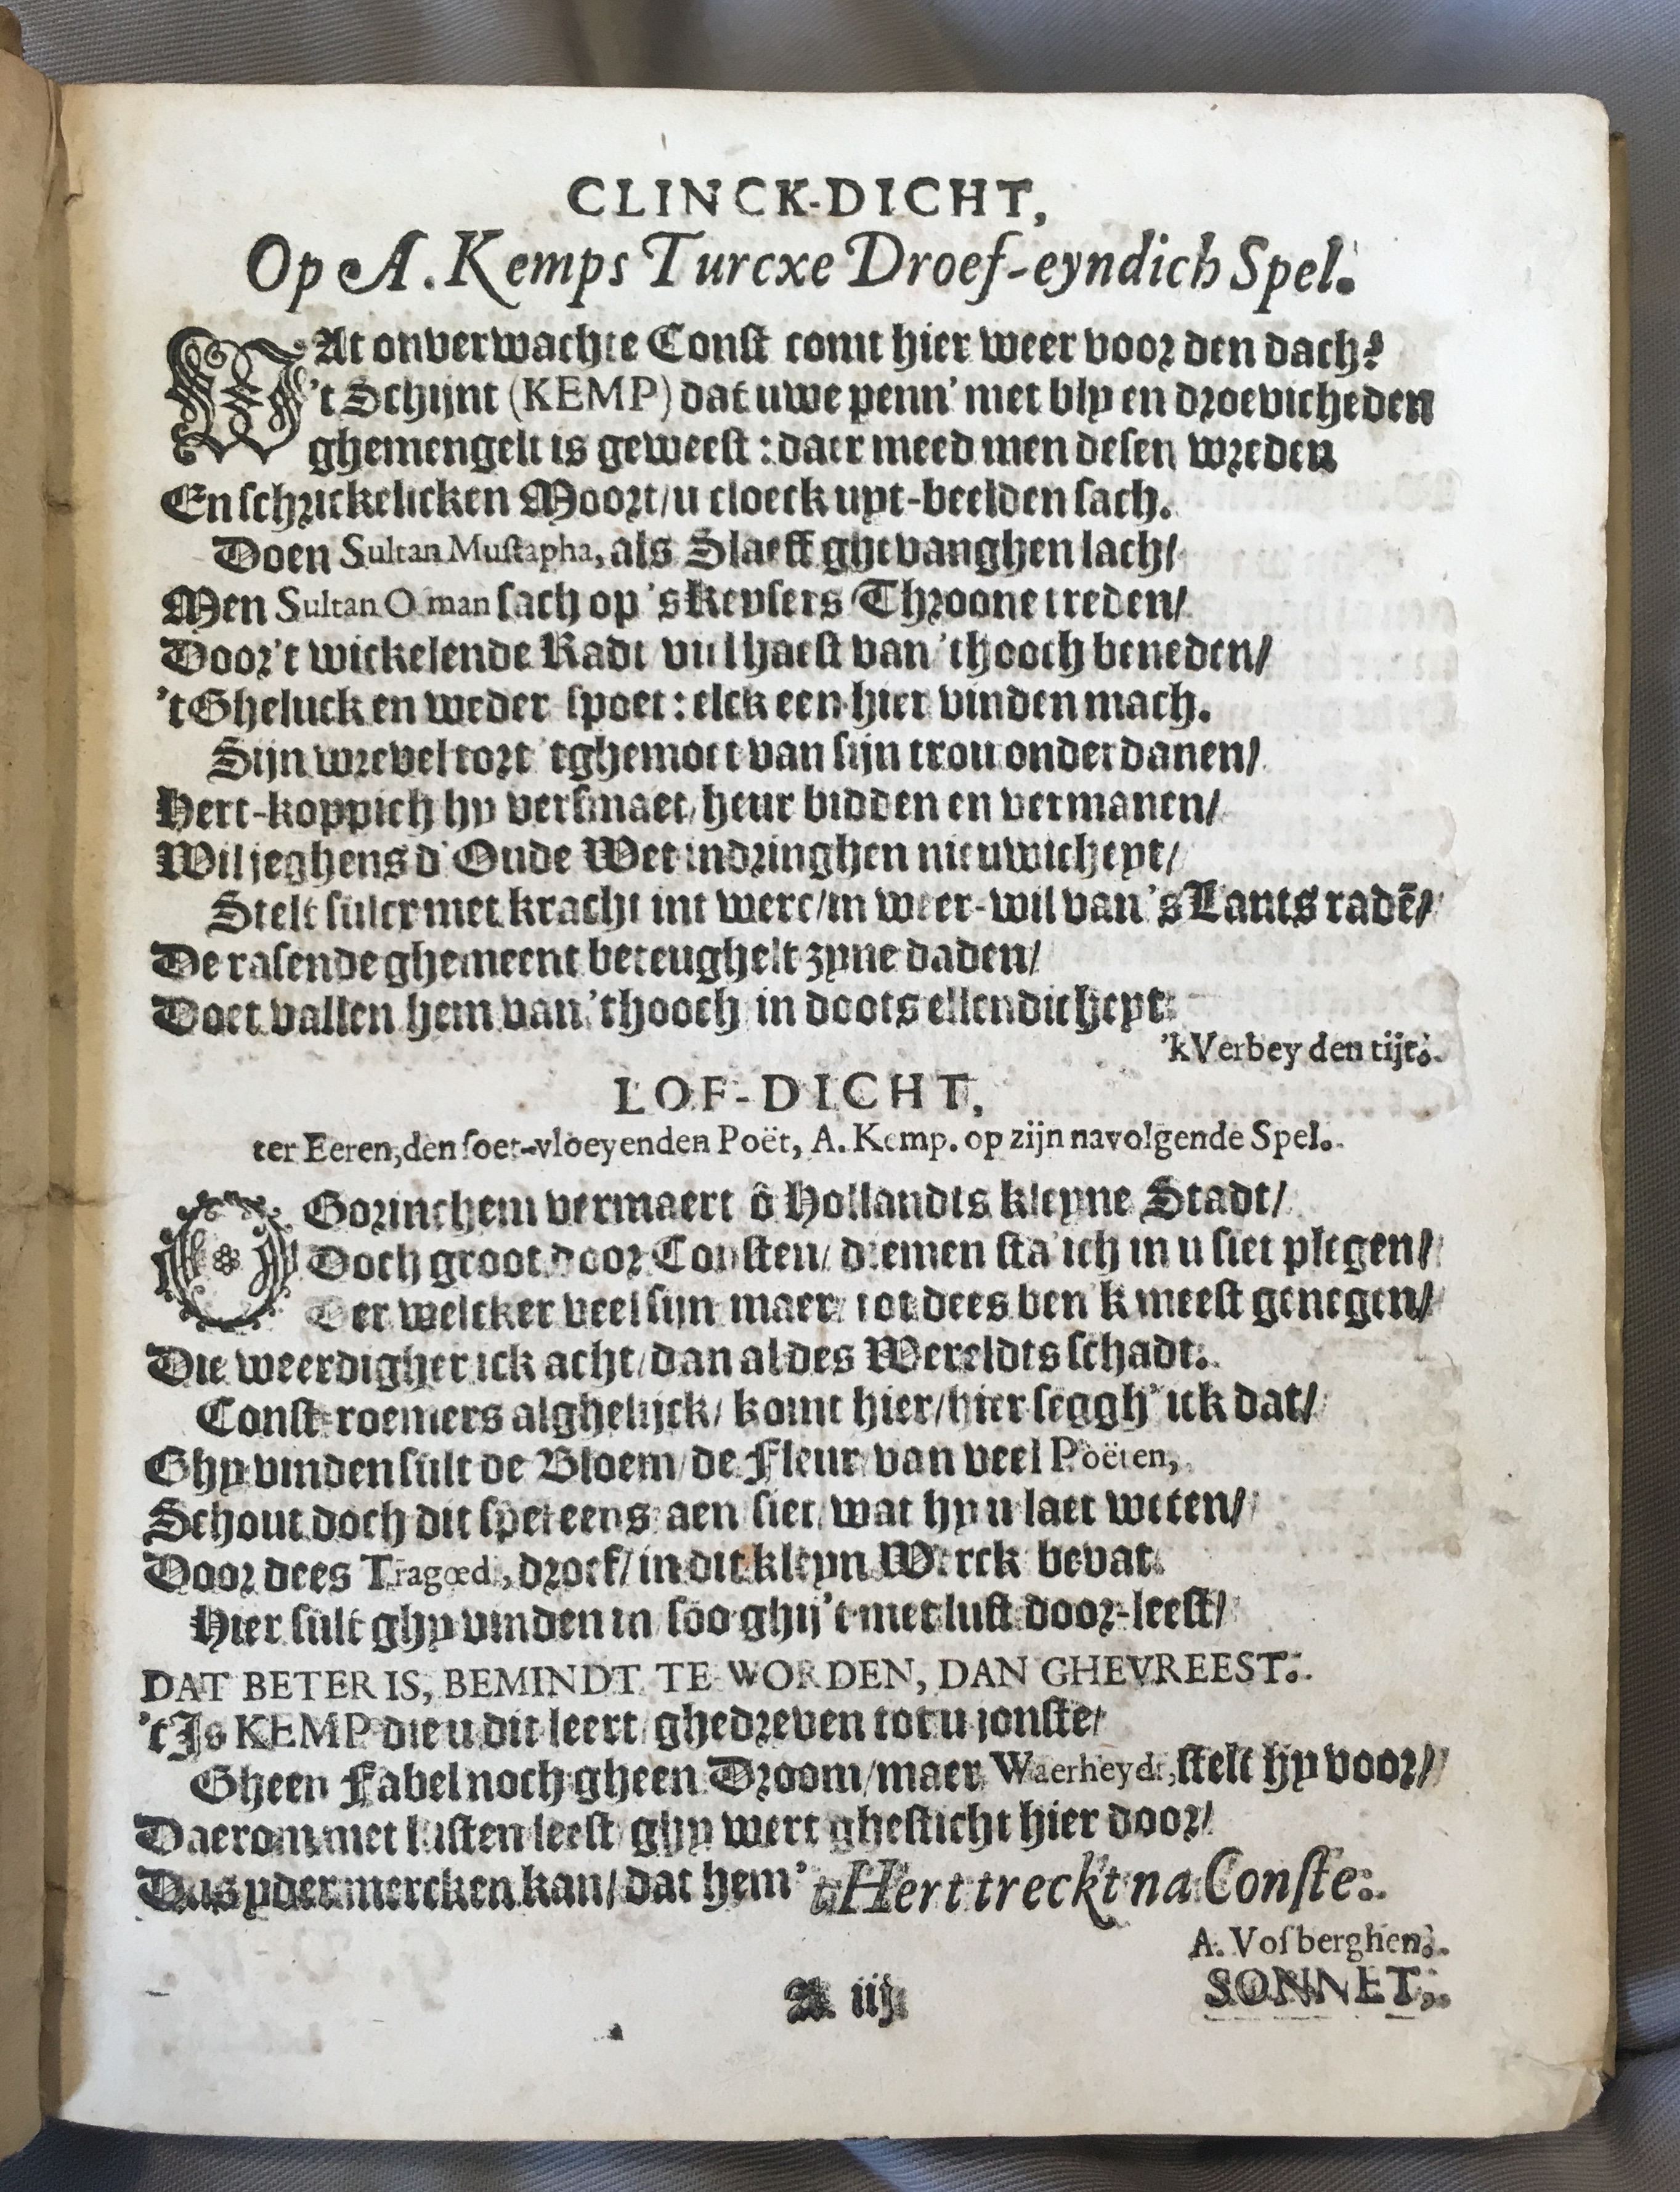 CLINCK-DICHT,
Op A. Kemps Turcxe Droef-eyndich Spel.
WAt onverwachte Const comt hier weer voor den dach?
't Schijnt (KEMP) dat uwe penn' met bly en droevicheden
ghemengelt is geweest: daer meed men desen wreden
En schrickelicken Moort/ u cloeck uyt-beelden sach.
Doen Sultan Mustapha, als Slaeff ghevanghen lach/
Men Sultan O man sach op 's Keysers Throone treden/
Door 't wickelende Radt vul haest van 'thooch beneden/
't Gheluck en weder spoet: elck een hier vinden mach.
Sijn wrevel tort 'tghemoet van sijn trou onderdanen/
Hert-koppich hy versmaet/ heur bidden en vermanen/
Wil jeghens d'Oude Wet indringhen nieuwicheyt/
Stelt sulcx met kracht int werc/ in weer-wil van 's Lants radē/
De rasende ghemeent beteughelt zyne daden/
Doet vallen hem van 'thooch in doots ellendicheyt.
'k Verbey den tijt.
LOF-DICHT,
ter Eeren, den soet-vloeyenden Poët, A. Kemp. op zijn navolgende Spel.
O Gorinchem vermaert ô Hollandts kleyne Stadt/
Doch groot door Consten/ diemen sta'ich in u siet plegen/
Der welcker veel sijn maer/ tot dees ben 'k meest genegen/
Die weerdigher ick acht/ dan al des Wereldts schadt.
Const-roemers alghelijck/ komt hier/ hier seggh' ick dat/
Ghy vinden sult de Bloem/ de Fleur van veel Poëten,
Schout doch dit spel eens aen siet/ wat hy u laet weten/
Door dees Tragœdi, droef/ in dit kleyn Werck bevat.
Hier sult ghy vinden in soo ghij 't met lust door-leest/
DAT BETER IS, BEMINDT TE WORDEN, DAN GHEVREEST.
't Is KEMP die u dit leert/ ghedreven tot u jonste/
Gheen Fabel noch gheen Droom/ maer Waerheydt, stelt hy voor/
Daerom met lusten leest/ ghy wert ghesticht hier door/
Dus yder mercken kan/ dat hem 't Hert treckt na Conste.
A. Vosberghen.
A iij
SONNET,